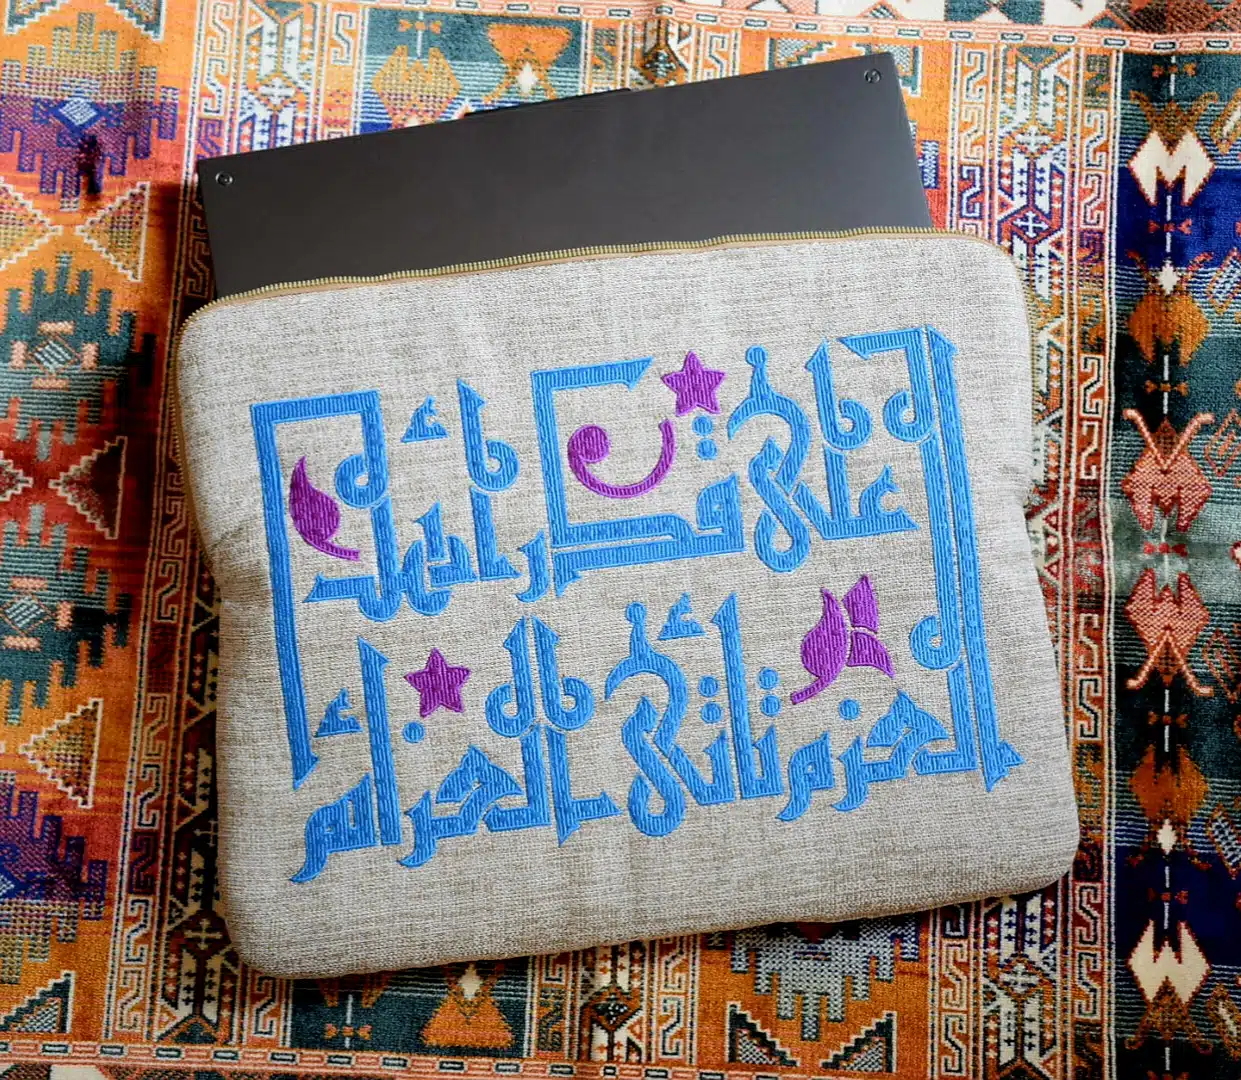 على قدر أهل
العزم تأتي العزائم